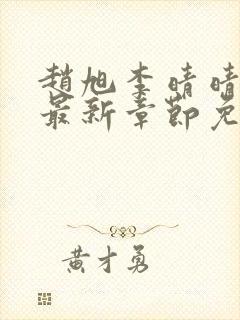 趙旭李晴晴
最新章節免
黃才勇